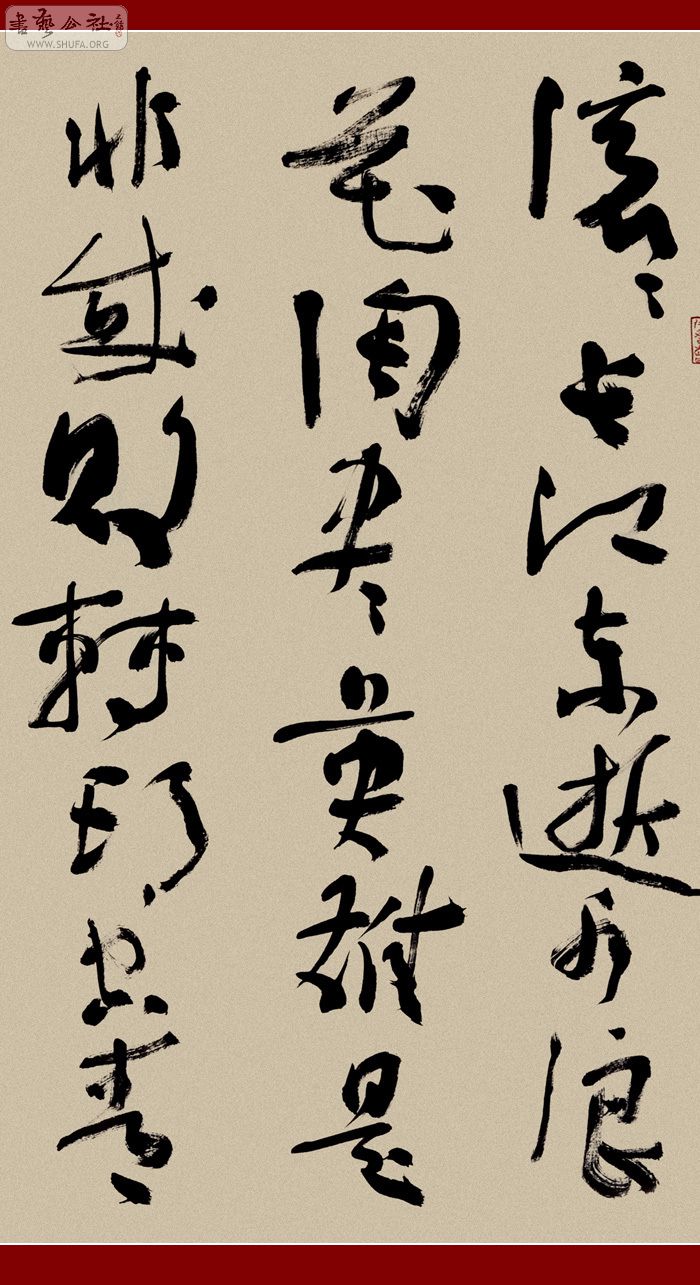 滚滚长江东逝水浪
花淘尽英雄是
非成败转头空青
書藝公社
WWW.SHUFA.ORG